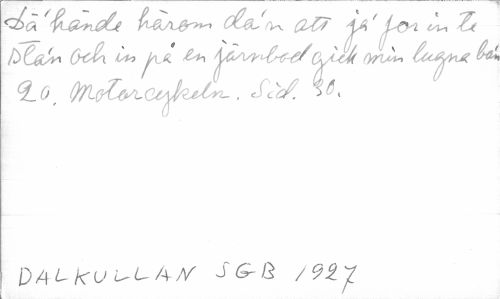 Dä' hände härom da'n att ja' for in te
sta'n och in på en järnbod gick min lugna ban
20. Motorcykeln. Sid. 30.
DALKULLAN SGB 1927